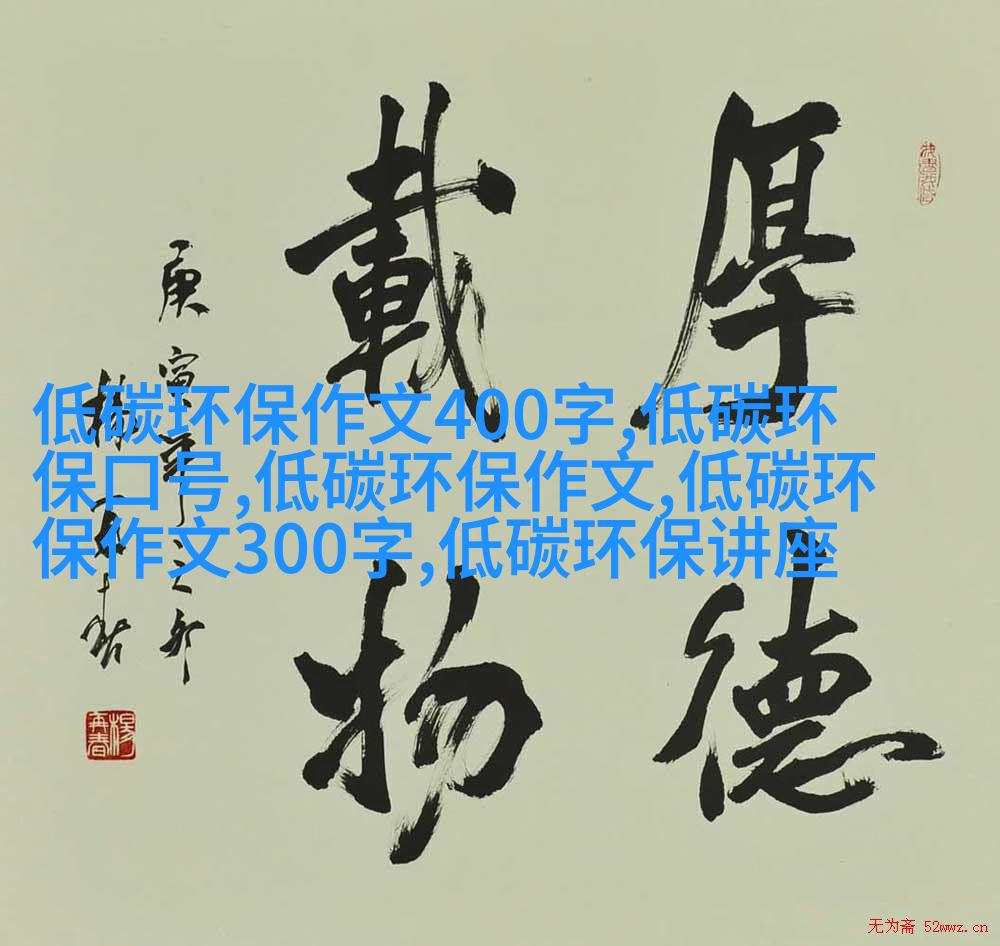 厚德
載物
庚寅年之卯
楊再春
楊再春
低碳环保作文400字,低碳环
保口号,低碳环保作文,低碳环
保作文300字,低碳环保讲座
无为斋 52wwz.cn